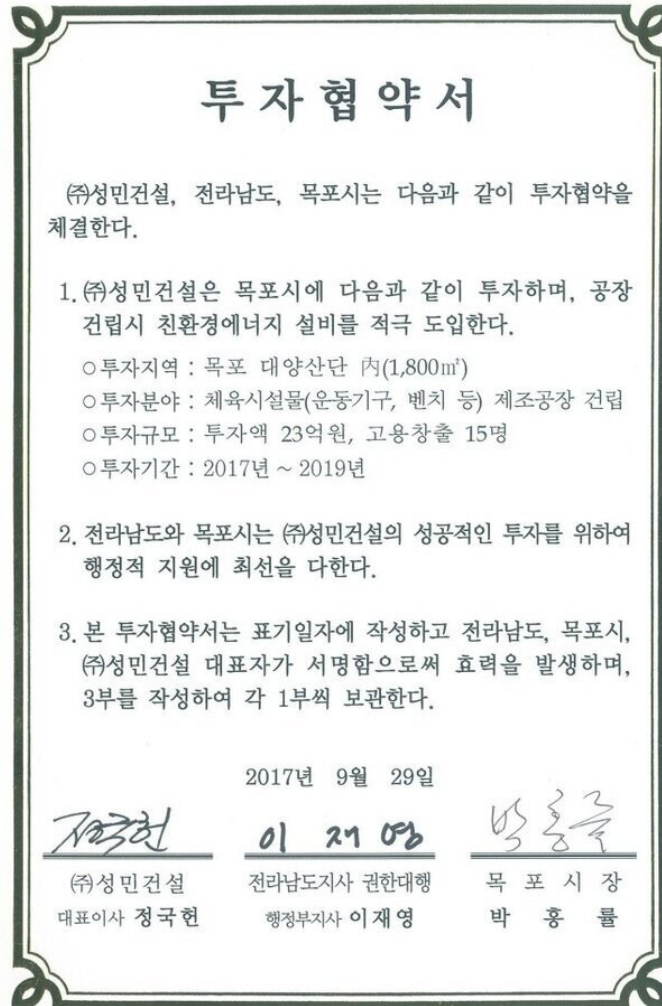 투자협약서
㈜성민건설, 전라남도, 목포시는 다음과 같이 투자협약을
체결한다.
1. ㈜성민건설은 목포시에 다음과 같이 투자하며, 공장
건립시 친환경에너지 설비를 적극 도입한다.
○투자지역 : 목포 대양산단 內(1,800㎡)
○투자분야 : 체육시설물(운동기구, 벤치 등) 제조공장 건립
○투자규모 : 투자액 23억원, 고용창출 15명
○투자기간 : 2017년 ~ 2019년
2. 전라남도와 목포시는 ㈜성민건설의 성공적인 투자를 위하여
행정적 지원에 최선을 다한다.
3. 본 투자협약서는 표기일자에 작성하고 전라남도, 목포시,
㈜성민건설 대표자가 서명함으로써 효력을 발생하며,
3부를 작성하여 각 1부씩 보관한다.
2017년 9월 29일
정국헌 이재영 박홍률
㈜성민건설 전라남도지사 권한대행 목 포 시 장
대표이사 정국헌 행정부지사 이재영 박 홍 률